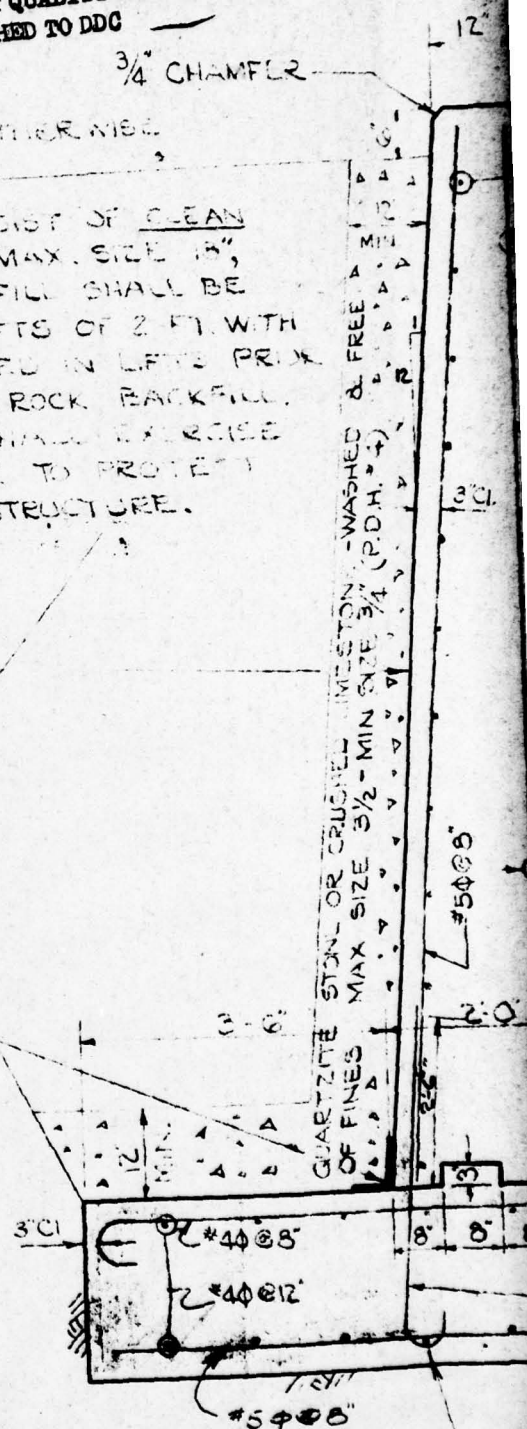 HED TO DDC
12"
3/4" CHAMFER
6"
12
MIN.
OF CLEAN
MAX. SIZE 18",
FILL SHALL BE
OF 2 FT. WITH
IN LIFTS PRIOR
ROCK BACKFILL.
EXERCISE
TO PROTECT
STRUCTURE.
12
3"Cl.
QUARTZITE STONE OR CRUSHED LIMESTONE -WASHED & FREE
OF FINES MAX SIZE 3 1/2 - MIN SIZE 3/4" (P.D.H. #4)
#5Φ@8"
3'-6"
2'-0"
2'-6"
12
MIN.
3"
3"Cl
#4Φ@8"
8"
8"
#4Φ@12"
#5Φ@8"